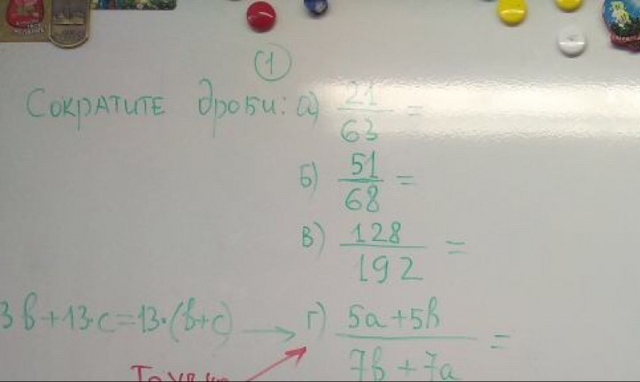 1
Сократите дроби: а) 21/63 =
б) 51/68 =
в) 128/192 =
3в+13·с=13·(в+с) → г) 5а+5в/7в+7а =